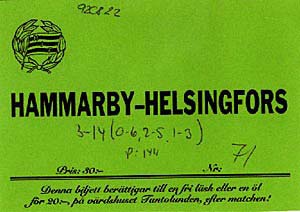 920822
HAMMARBY–HELSINGFORS
3-14 (0-6, 2-5, 1-3)
p: 144
Pris: 30:- Nr: 71
Denna biljett berättigar till en fri läsk eller en öl
för 20:-, på värdshuset Tantolunden, efter matchen!